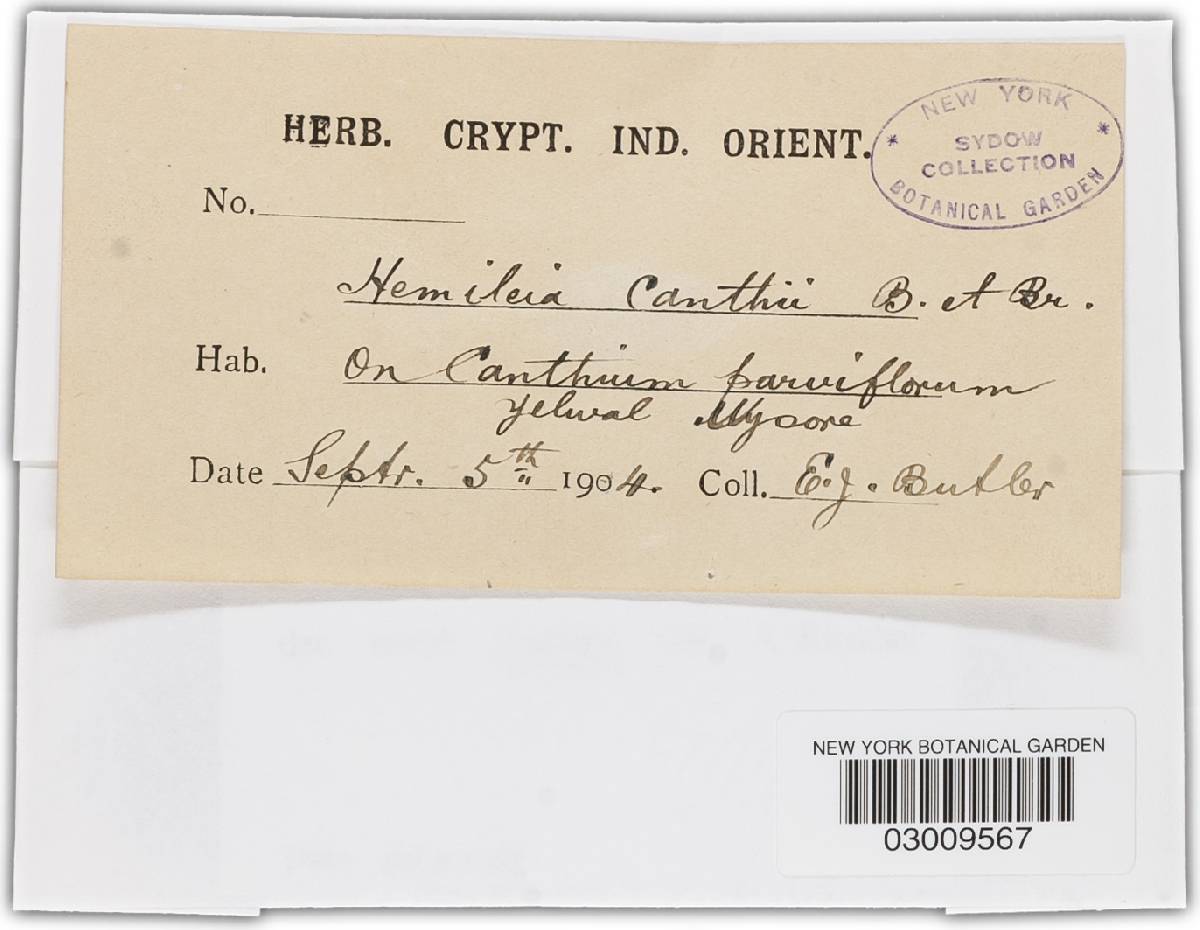 HERB. CRYPT. IND. ORIENT.
NEW YORK
SYDOW
COLLECTION
BOTANICAL GARDEN
No.
Hemileia Canthii B. et Br.
Hab. On Canthium parviflorum
Yelwal Mysore
Date Septr. 5th 1904. Coll. E.J. Butler
NEW YORK BOTANICAL GARDEN
03009567